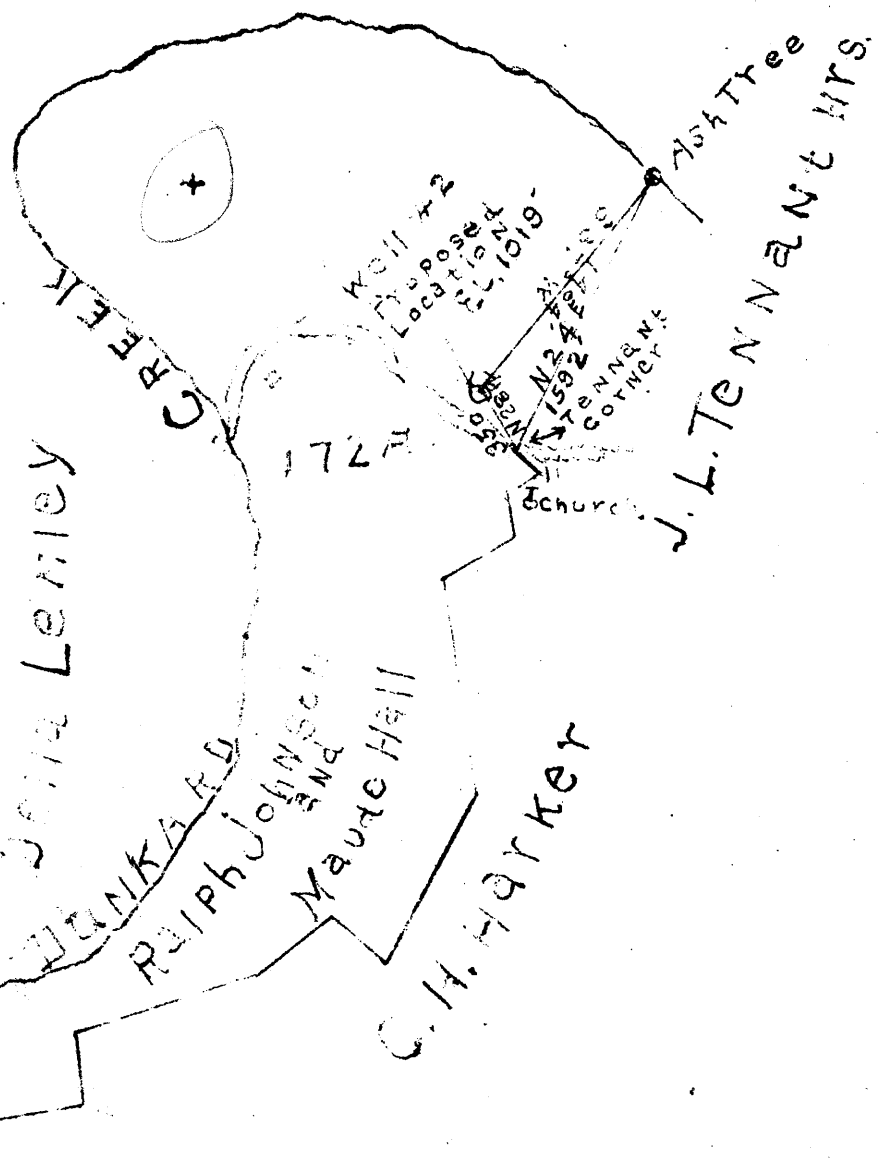 Ash Tree
J. L. TENNANT Hrs.
Well #2
Proposed
Location
EL. 1019'
N24
1592'
TENNANT
CORNER
350'
N28W
Church
172A
CREEK
Lemley
DUNKARD
Ralph Johnson
and
Maude Hall
C. H. Harker